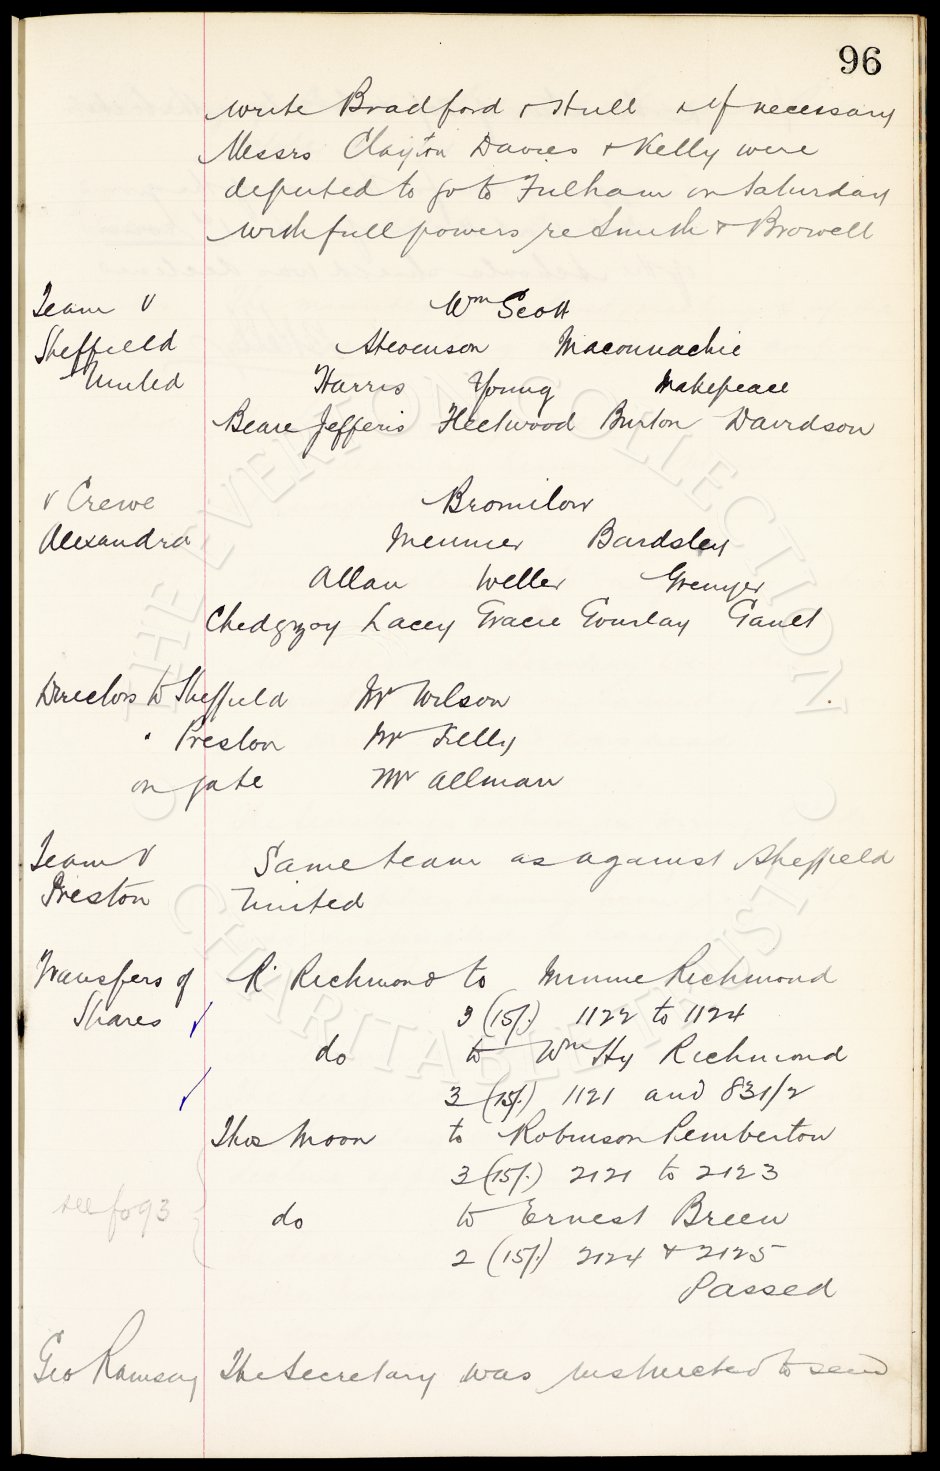 96
write Bradford & Hull & if necessary
Messrs Clayton Davies & Kelly were
deputed to go to Fulham on Saturday
with full powers re Smith & Browell
Team v Wm Scott
Sheffield Stevenson Maconnachie
United Harris Young Makepeace
Beare Jefferis Fleetwood Burton Davidson
v Crewe Bromilow
Alexandra Meunier Bardsley
Allan Weller Grenyer
Chedgzoy Lacey Gracie Gourlay Gault
Directors to Sheffield Mr Wilson
" Preston Mr Kelly
on gate Mr Allman
Team v Same team as against Sheffield
Preston United
Transfers of R Richmond to Minnie Richmond
Shares 3 (15/-) 1122 to 1124
do to Wm Hy Richmond
3 (15/-) 1121 and 831/2
Thos Moon to Robinson Pemberton
3 (15/-) 2121 to 2123
see fo 93 do to Ernest Breen
2 (15/-) 2124 & 2125
Passed
Geo Ramsay The Secretary was instructed to send
THE EVERTON COLLECTION
CHARITABLE TRUST